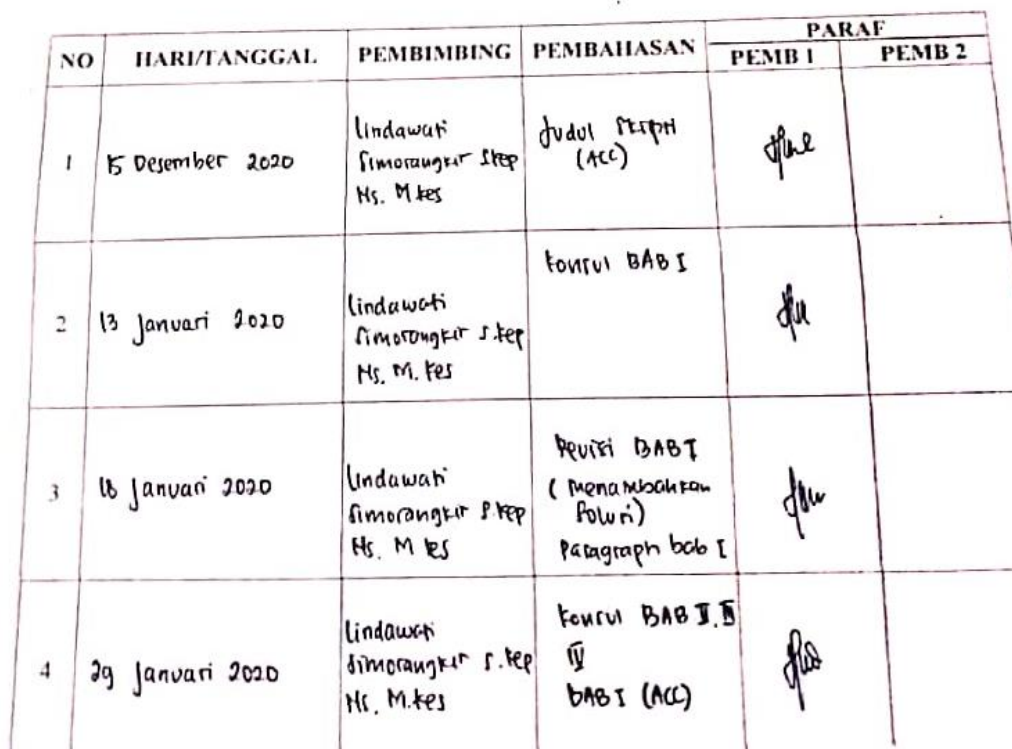 NO HARI/TANGGAL PEMBIMBING PEMBAHASAN PARAF
PEMB 1 PEMB 2
1 15 Desember 2020 Lindawati Simorangkir Skep Ns. M.kes Judul Skripsi (ACC)
2 13 Januari 2020 Lindawati Simorangkir S.kep Ns. M. kes Konsul BAB I
3 18 Januari 2020 Lindawati Simorangkir S.kep Ns. M kes Revisi BAB I (Menambahkan Solusi) Paragraph bab I
4 29 Januari 2020 Lindawati Simorangkir S.kep Ns. M.kes Konsul BAB II, III IV BAB I (ACC)